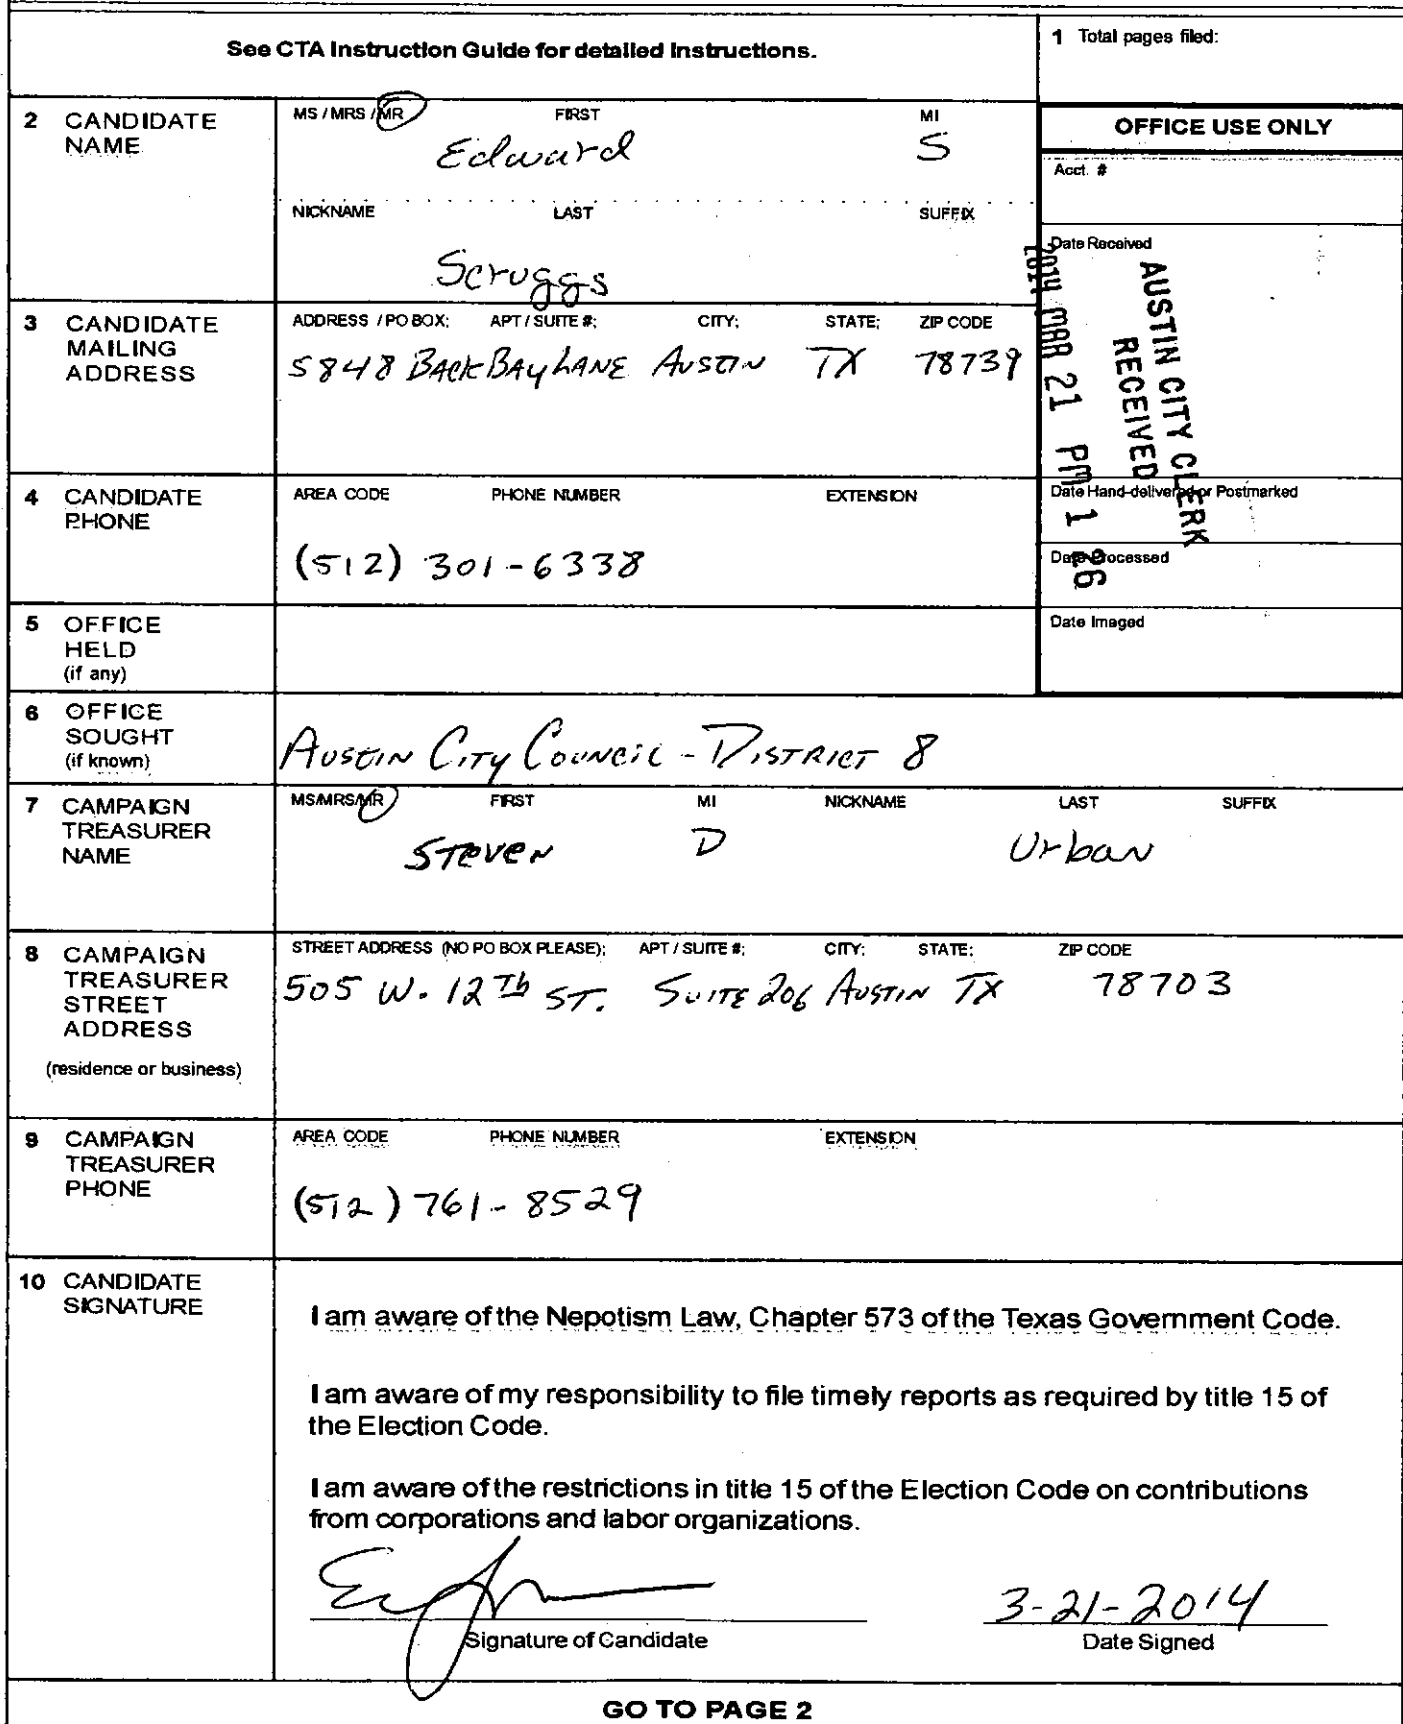 See CTA Instruction Guide for detailed Instructions.
1 Total pages filed:
2 CANDIDATE NAME
MS / MRS / MR FIRST MI
Edward S
NICKNAME LAST SUFFIX
Scruggs
OFFICE USE ONLY
Acct. #
Date Received
AUSTIN CITY CLERK
RECEIVED
2014 MAR 21 PM 1 26
Date Hand-delivered or Postmarked
Date Processed
Date Imaged
3 CANDIDATE MAILING ADDRESS
ADDRESS / PO BOX; APT / SUITE #; CITY; STATE; ZIP CODE
5848 BACK BAY LANE AUSTIN TX 78739
4 CANDIDATE PHONE
AREA CODE PHONE NUMBER EXTENSION
(512) 301-6338
5 OFFICE HELD (if any)
6 OFFICE SOUGHT (if known)
AUSTIN CITY COUNCIL - DISTRICT 8
7 CAMPAIGN TREASURER NAME
MS/MRS/MR FIRST MI NICKNAME LAST SUFFIX
Steven D Urban
8 CAMPAIGN TREASURER STREET ADDRESS
(residence or business)
STREET ADDRESS (NO PO BOX PLEASE); APT / SUITE #; CITY; STATE; ZIP CODE
505 W. 12th ST. SUITE 206 AUSTIN TX 78703
9 CAMPAIGN TREASURER PHONE
AREA CODE PHONE NUMBER EXTENSION
(512) 761-8529
10 CANDIDATE SIGNATURE
I am aware of the Nepotism Law, Chapter 573 of the Texas Government Code.
I am aware of my responsibility to file timely reports as required by title 15 of
the Election Code.
I am aware of the restrictions in title 15 of the Election Code on contributions
from corporations and labor organizations.
3-21-2014
Signature of Candidate Date Signed
GO TO PAGE 2